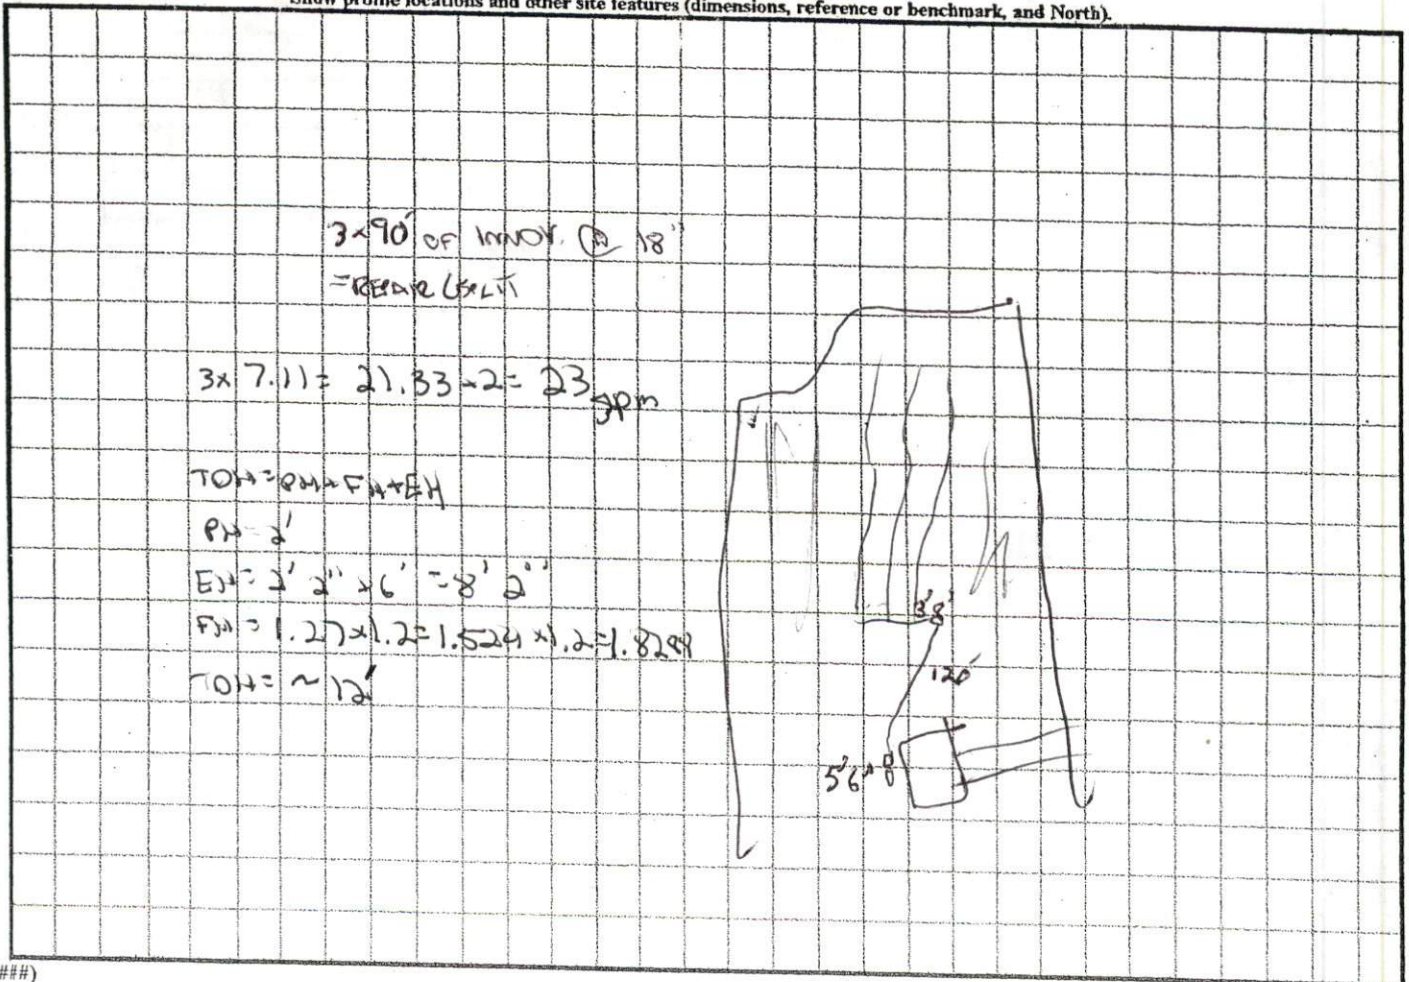 Show profile locations and other site features (dimensions, reference or benchmark, and North).
3x90' OF INNOV. @ 18"
=REPAIR
3x 7.11= 21.33 +2= 23 gpm
TDH=PH+FH+EH
PH= 2'
EH= 2' 2" +6' =8' 2"
FH= 1.27x1.2=1.524 x1.2=1.8288
TDH= ~12'
3'8"
120'
5'6"
###)